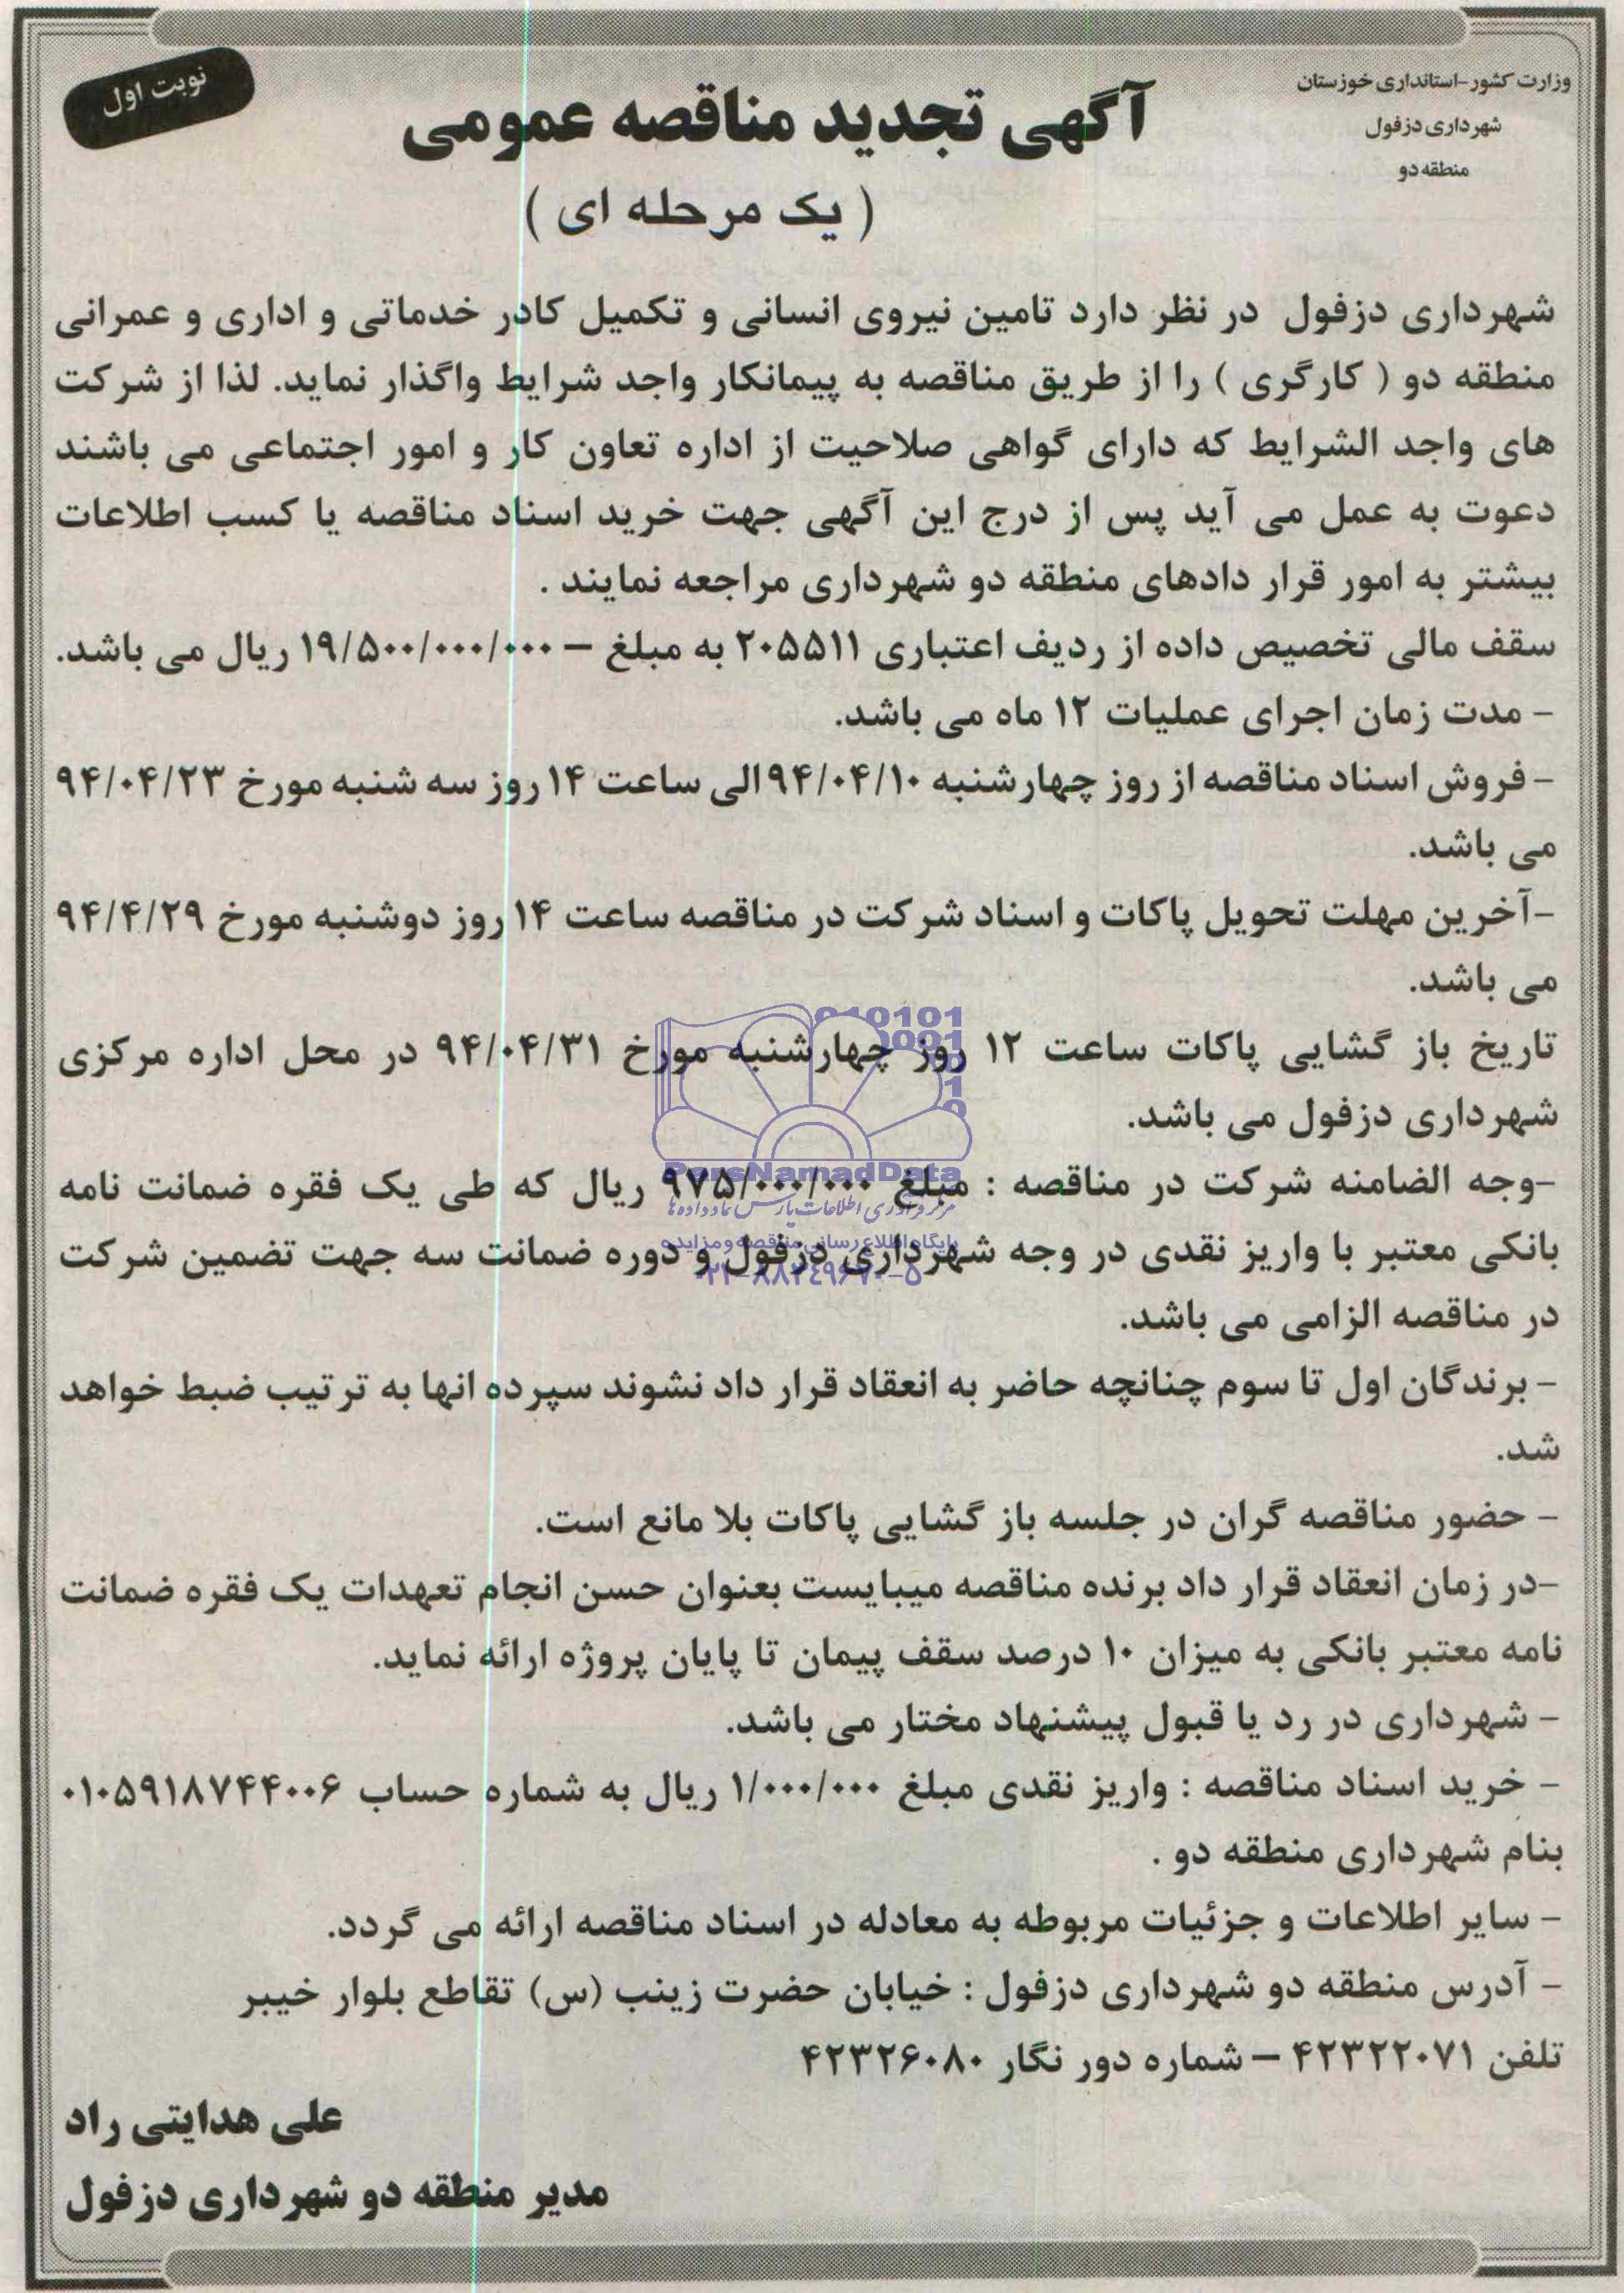 وزارت کشور-استانداری خوزستان
شهرداری دزفول
منطقه دو
نوبت اول
آگهی تجدید مناقصه عمومی
( یک مرحله ای )
شهرداری دزفول در نظر دارد تامین نیروی انسانی و تکمیل کادر خدماتی و اداری و عمرانی
منطقه دو ( کارگری ) را از طریق مناقصه به پیمانکار واجد شرایط واگذار نماید. لذا از شرکت
های واجد الشرایط که دارای گواهی صلاحیت از اداره تعاون کار و امور اجتماعی می باشند
دعوت به عمل می آید پس از درج این آگهی جهت خرید اسناد مناقصه یا کسب اطلاعات
بیشتر به امور قرار دادهای منطقه دو شهرداری مراجعه نمایند .
سقف مالی تخصیص داده از ردیف اعتباری ۲۰۵۵۱۱ به مبلغ – ۱۹/۵۰۰/۰۰۰/۰۰۰ ریال می باشد.
- مدت زمان اجرای عملیات ۱۲ ماه می باشد.
- فروش اسناد مناقصه از روز چهارشنبه ۹۴/۰۴/۱۰ الی ساعت ۱۴ روز سه شنبه مورخ ۹۴/۰۴/۲۳
می باشد.
-آخرین مهلت تحویل پاکات و اسناد شرکت در مناقصه ساعت ۱۴ روز دوشنبه مورخ ۹۴/۴/۲۹
می باشد.
تاریخ باز گشایی پاکات ساعت ۱۲ روز چهارشنبه مورخ ۹۴/۰۴/۳۱ در محل اداره مرکزی
شهرداری دزفول می باشد.
ParsNamadData
-وجه الضامنه شرکت در مناقصه : مبلغ ۹۷۵/۰۰۰/۰۰۰ ریال که طی یک فقره ضمانت نامه
مرکز فرآوری اطلاعات پارس نماد داده ها
پایگاه اطلاع رسانی مناقصه و مزایده
بانکی معتبر با واریز نقدی در وجه شهرداری دزفول و دوره ضمانت سه جهت تضمین شرکت
۰۲۱-۸۸۲۴۹۶۷۰-۵
در مناقصه الزامی می باشد.
- برندگان اول تا سوم چنانچه حاضر به انعقاد قرار داد نشوند سپرده انها به ترتیب ضبط خواهد
شد.
- حضور مناقصه گران در جلسه باز گشایی پاکات بلا مانع است.
-در زمان انعقاد قرار داد برنده مناقصه میبایست بعنوان حسن انجام تعهدات یک فقره ضمانت
نامه معتبر بانکی به میزان ۱۰ درصد سقف پیمان تا پایان پروژه ارائه نماید.
- شهرداری در رد یا قبول پیشنهاد مختار می باشد.
- خرید اسناد مناقصه : واریز نقدی مبلغ ۱/۰۰۰/۰۰۰ ریال به شماره حساب ۰۱۰۵۹۱۸۷۴۴۰۰۶
بنام شهرداری منطقه دو .
- سایر اطلاعات و جزئیات مربوطه به معادله در اسناد مناقصه ارائه می گردد.
- آدرس منطقه دو شهرداری دزفول : خیابان حضرت زینب (س) تقاطع بلوار خیبر
تلفن ۴۲۳۲۲۰۷۱ – شماره دور نگار ۴۲۳۲۶۰۸۰
علی هدایتی راد
مدیر منطقه دو شهرداری دزفول